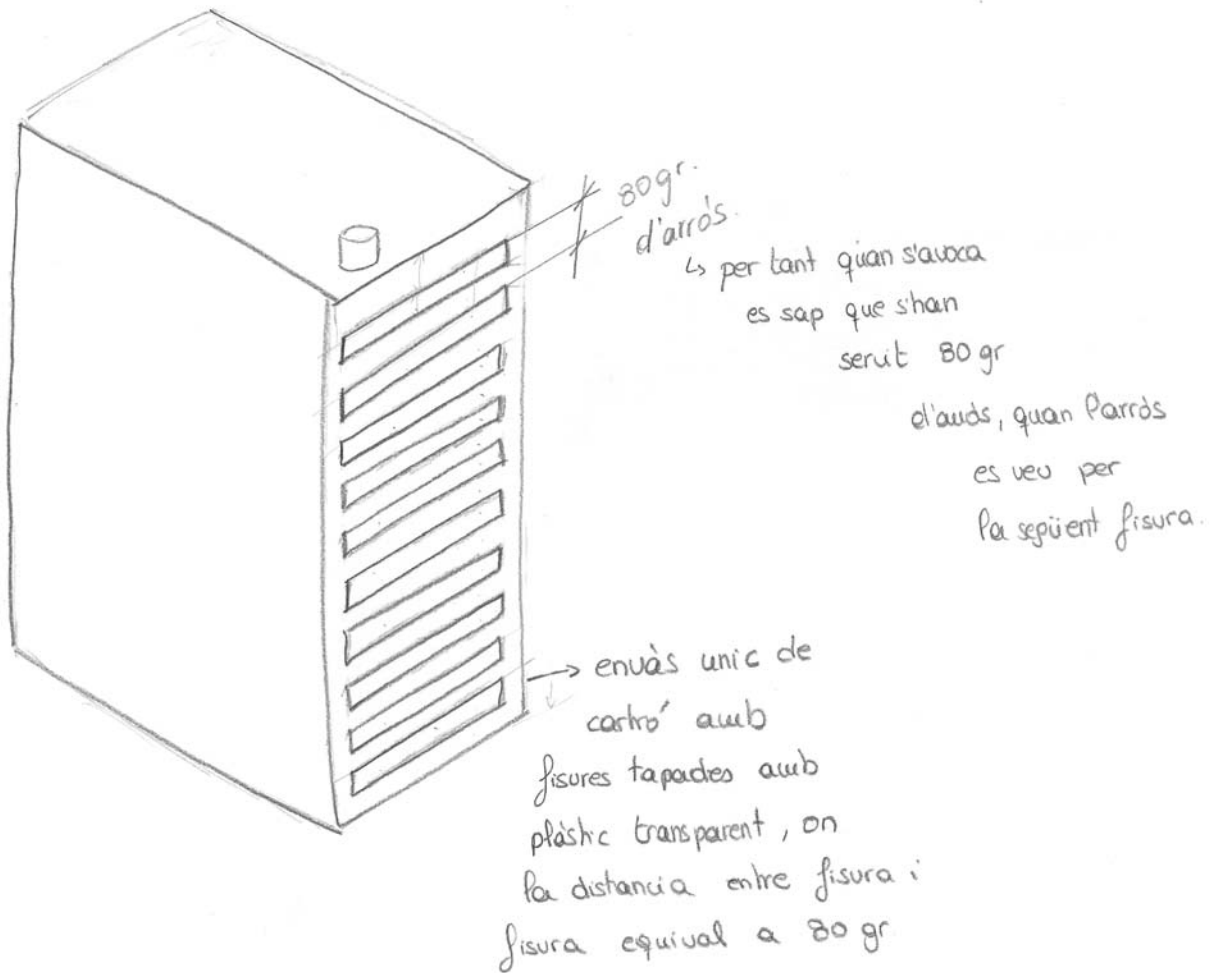 80gr.
d'arròs.
↳ per tant quan s'avoca
es sap que s'han
servit 80 gr
d'arròs, quan l'arròs
es veu per
la següent fisura.
→ envàs unic de
cartró amb
fisures tapades amb
plàstic transparent, on
la distancia entre fisura i
fisura equival a 80 gr